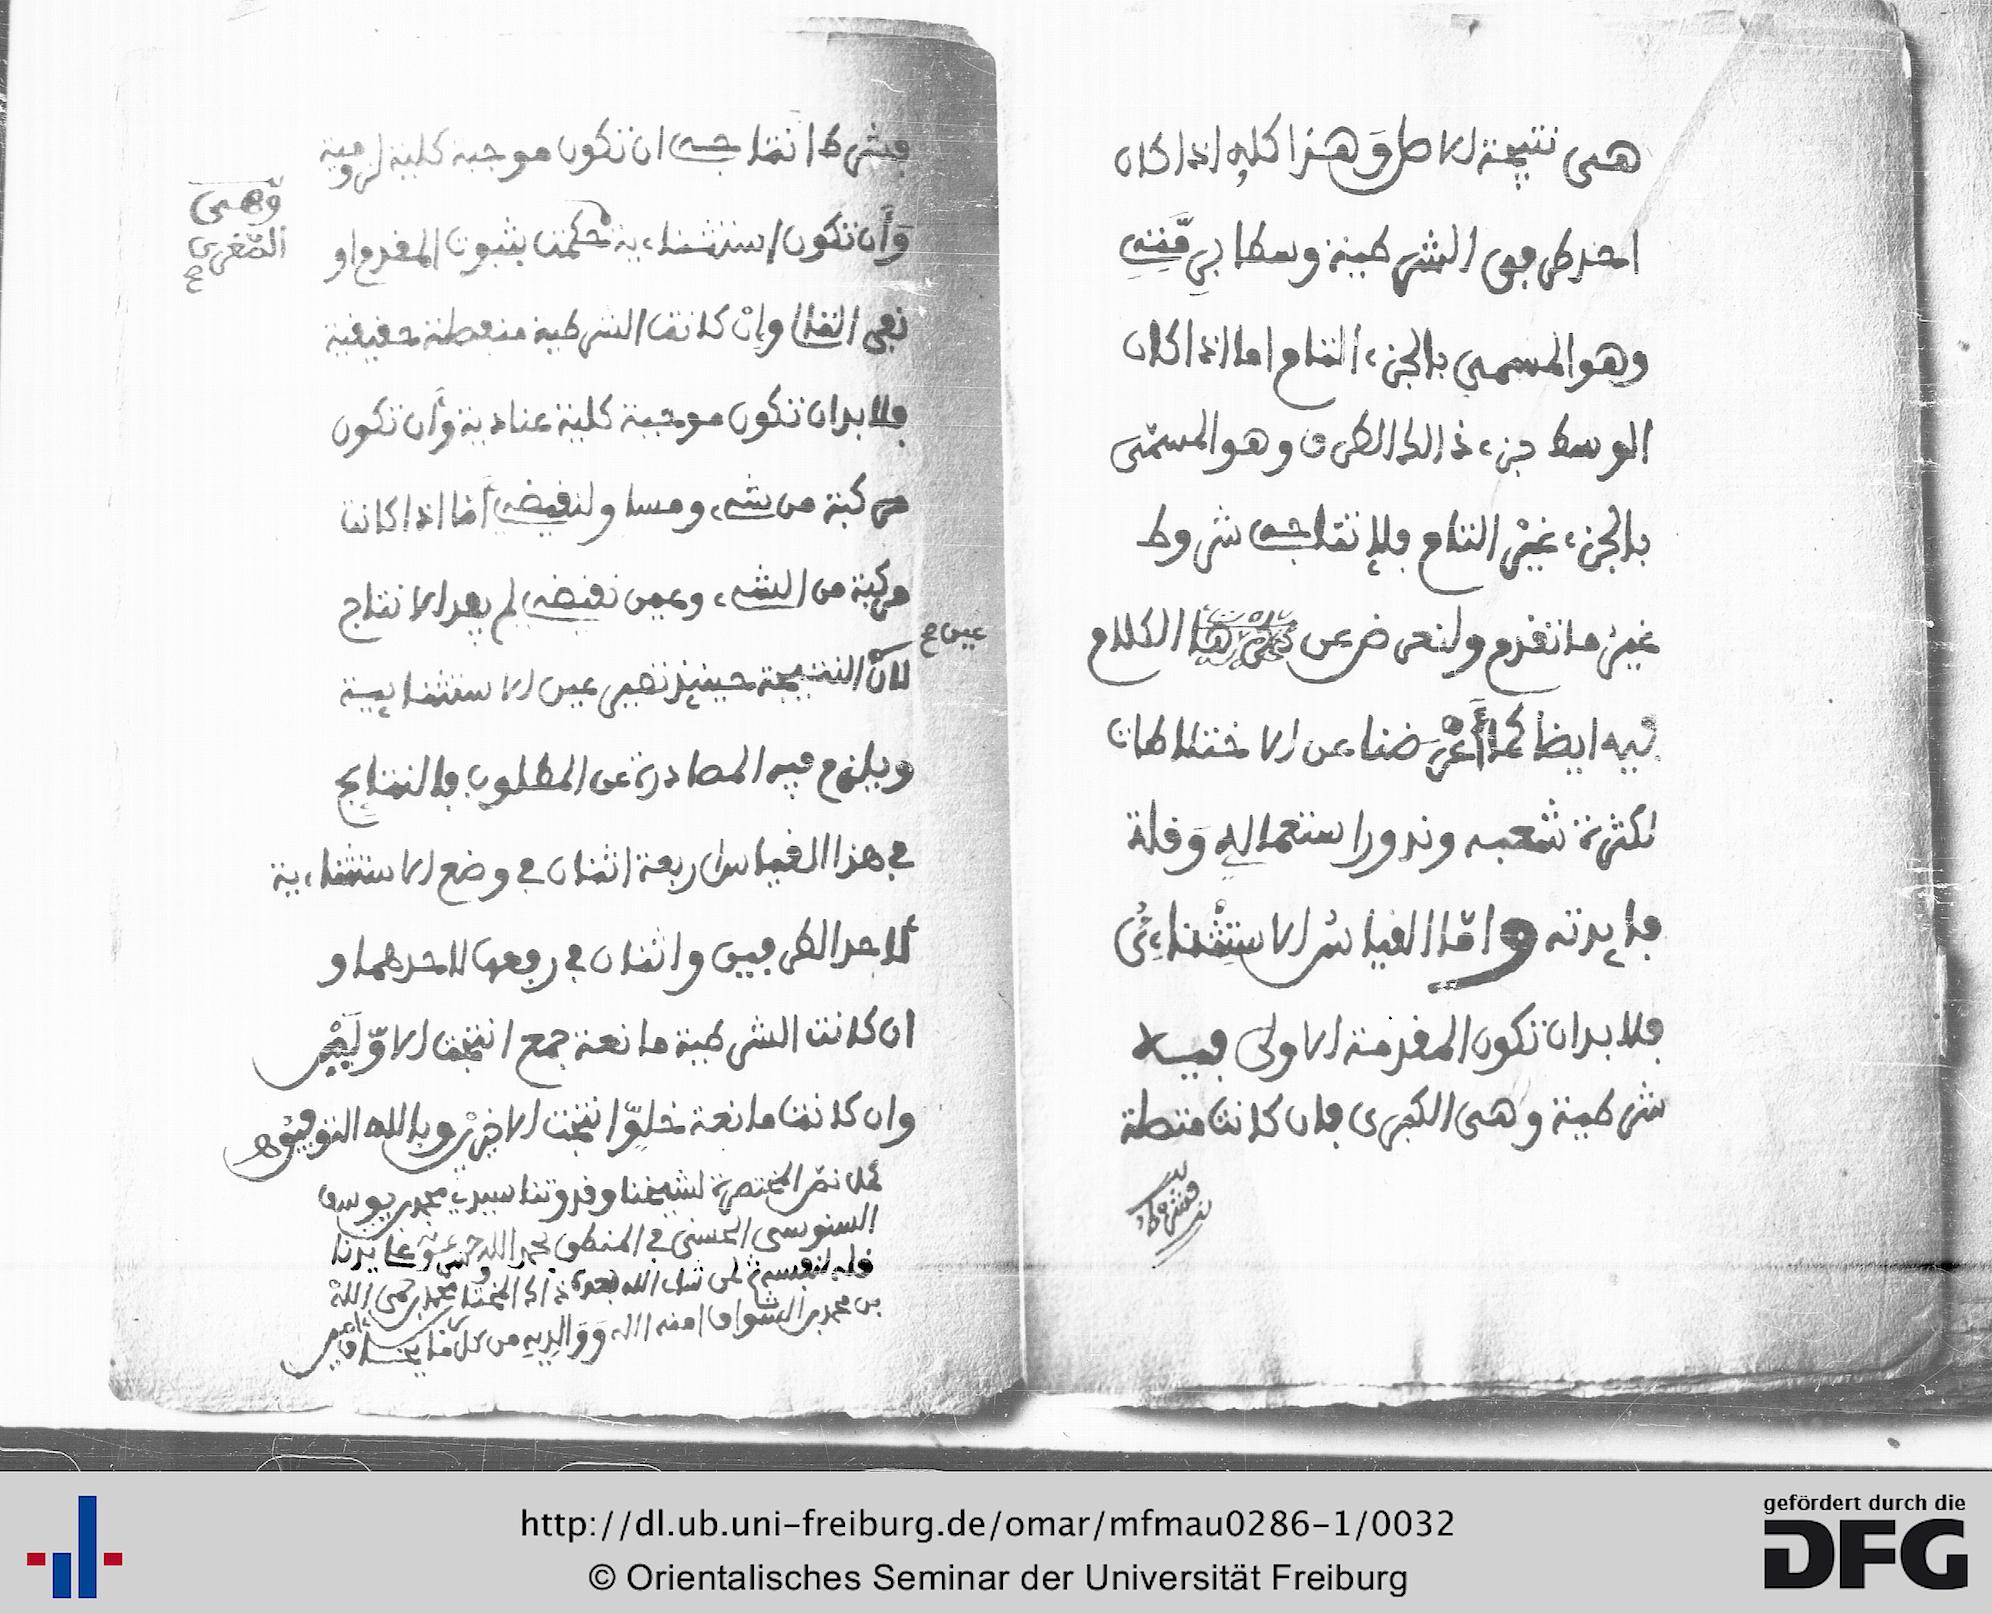 هى نتيجة الاصل وَهذا كله اذا كان
احد طرفى الشرطية وسطا برمّته
وهو المسمى بالجزء التام اما اذا كان
الوسط جزء ذالك الطرف وهو المسمّى
بالجزء غير التام فلإنتاجه شروط
غير ما تقدم ولنعرض عن الكلام
فيه ايضا كما أَعْرضنا عن الاختلاطات
لكثرة شعبه وندور استعماله وَقلة
فايدته وامّا القياسُ الاستِثْناءىُّ
فلا بد ان تكون المقدمة الاولى فيه
شرطية وهى الكبرى فان كانت متصلة
فشرط
فشرط انتاجه ان تكون موجبة كلية لزومية
وَأَن تكون إستثناءية حكمت بثبوت المقدم او
نفى التالى وإنْ كانت الشرطية منفصلة حقيقية
فلا بد ان تكون موجبة كلية عنادية وأن تكون
مركبة من شىء ومساو لنقيضه أما اذا كانت
مركبة من الشىء وعين نقيضه لم يفد الانتاج
لأنّ النتيجة حينيذ تصير عين الاستثنايية
ويلزم فيه المصادرة عن المطلوب فالنتايج
في هذا القياس اربعة اثنان في وضع الاستثناءية
لأحد الطرفين واثنان في رفعها لاحدهما و
ان كانت الشرطية مانعة جمع انتجت الاوّلَيْن
وان كانت مانعة خلوّ انتجت الاخريْن وبالله التوفيق
وَهىَ
الصّغرى
عين
كمل نصّ المختصر لشيخنا وقدوتنا سيدي محمد بن يوسف
السنوسى الحسنى في المنطق بحمد الله
بن محمد بن امنه الله وَوَالِدِيهِ من كل ما يخاف
http://dl.ub.uni-freiburg.de/omar/mfmau0286-1/0032
© Orientalisches Seminar der Universität Freiburg
gefördert durch die
DFG